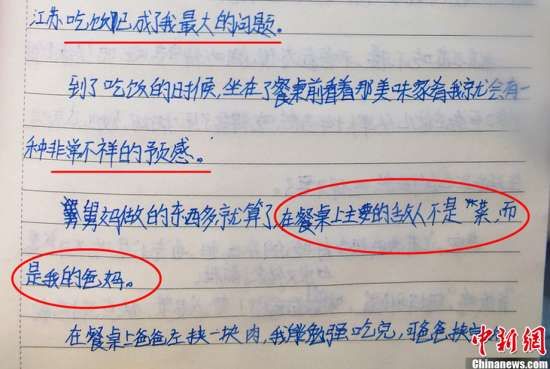 江苏吃饭已成了我最大的问题。
到了吃饭的时候,坐在了餐桌前看着那美味家肴我就会有一
种非常不祥的预感。
舅舅妈做的东西多就算了,在餐桌上主要的敌人不是“菜”,而
是我的爸妈。
在餐桌上爸爸左挟一块肉,我能勉强吃完,可爸爸挟完
中新网
Chinanews.com